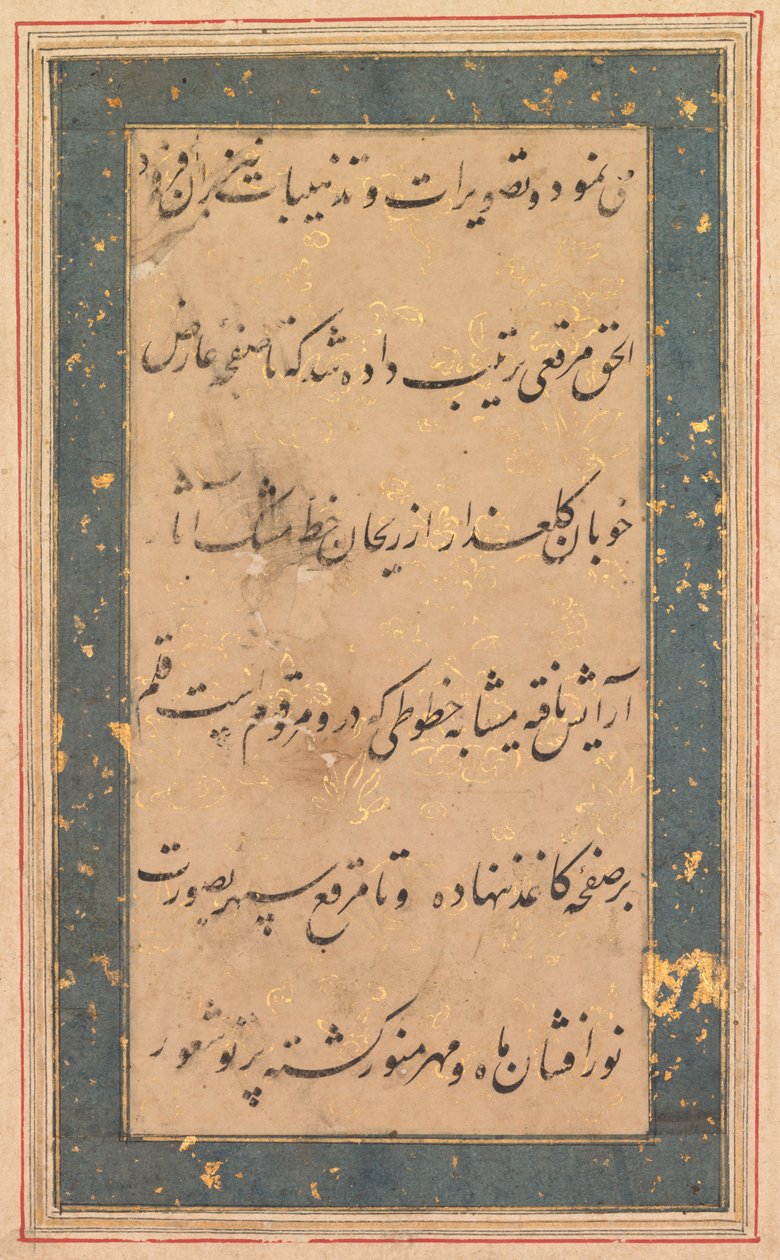 می نمود و تصویرات و تذهیبات نیز بران افزود
الحق مرقعی ترتیب داده شد که تا صفحۀ عارض
خوبان گلعذار از ریحان خط مشک آثار
آرایش یافته مشابه خطوطی که درو مرقوم است قلم
بر صفحۀ کاغذ نهاده و تا مرقع سپهر بصورت
نور افشان ماه و مهر منور کشته پرتو شعور